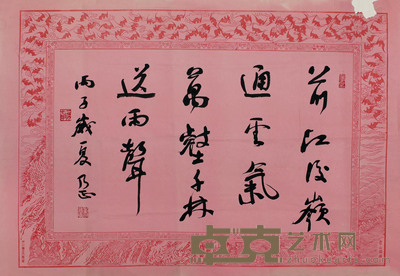 前江后嶺
通雲氣
萬壑千林
送雨聲
丙子歲夏
卓克艺术网